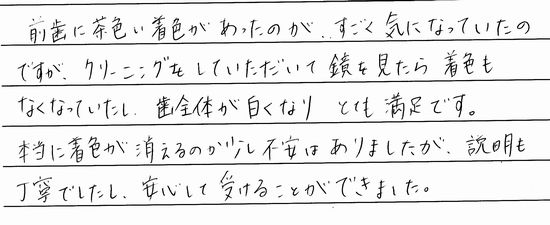 前歯に茶色い着色があったのが、すごく気になっていたの
ですが、クリーニングをしていただいて鏡を見たら着色も
なくなっていたし、歯全体が白くなりとても満足です。
本当に着色が消えるのか少し不安はありましたが、説明も
丁寧でしたし、安心して受けることができました。